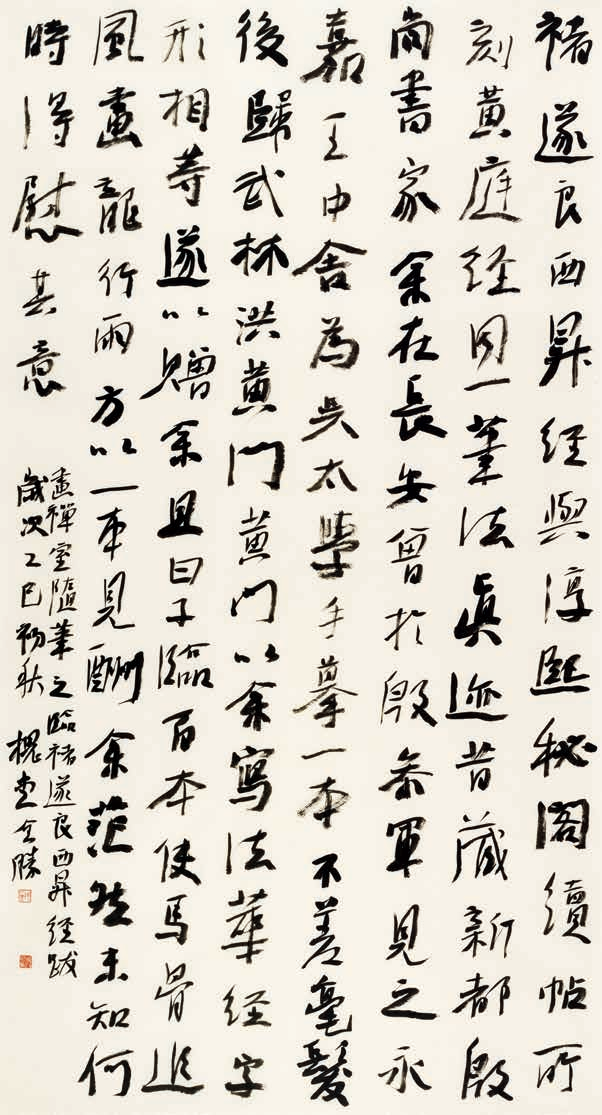 褚遂良西昇經與淳熙秘閣續帖所
刻黃庭経同一筆法真迹昔藏新都殷
尚書家余在長安曾於殷参軍見之永
嘉王中舍為吳太學手摹一本不差毫髮
後歸武林洪黄門黄門以余寫法華经字
形相等遂以贈余且曰子臨百本使馬骨追
風畫龍行雨方以一本見酬余茫然未知何
時得慰其意
畫禪室隨筆之臨褚遂良西昇経跋
歲次乙巳初秋